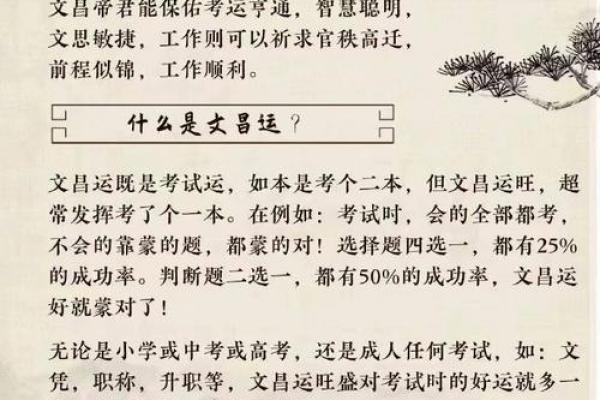 文昌帝君能保佑考运亨通，智慧聪明，
文思敏捷，工作则可以祈求官秩高迁，
前程似锦，工作顺利。
什么是文昌运？
文昌运既是考试运，如本是考个二本，但文昌运旺，超
常发挥考了个一本。在例如：考试时，会的全部都考，
不会的靠蒙的题，都蒙的对！选择题四选一，都有25%
的成功率。判断题二选一，都有50%的成功率，文昌运
好就蒙对了！
无论是小学或中考或高考，还是成人任何考试，如：文
凭，职称，升职等，文昌运旺盛对考试时的好运就多一